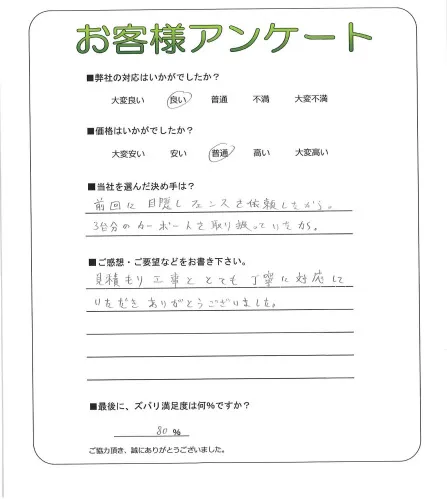 お客様アンケート
■弊社の対応はいかがでしたか？
大変良い 良い 普通 不満 大変不満
■価格はいかがでしたか？
大変安い 安い 普通 高い 大変高い
■当社を選んだ決め手は？
前回に目隠しフェンスを依頼したから。
3台分のカーポートを取り扱っていたから。
■ご感想・ご要望などをお書き下さい。
見積もり工事ととても丁寧に対応して
いただきありがとうございました。
■最後に、ズバリ満足度は何％ですか？
80 %
ご協力頂き、誠にありがとうございました。